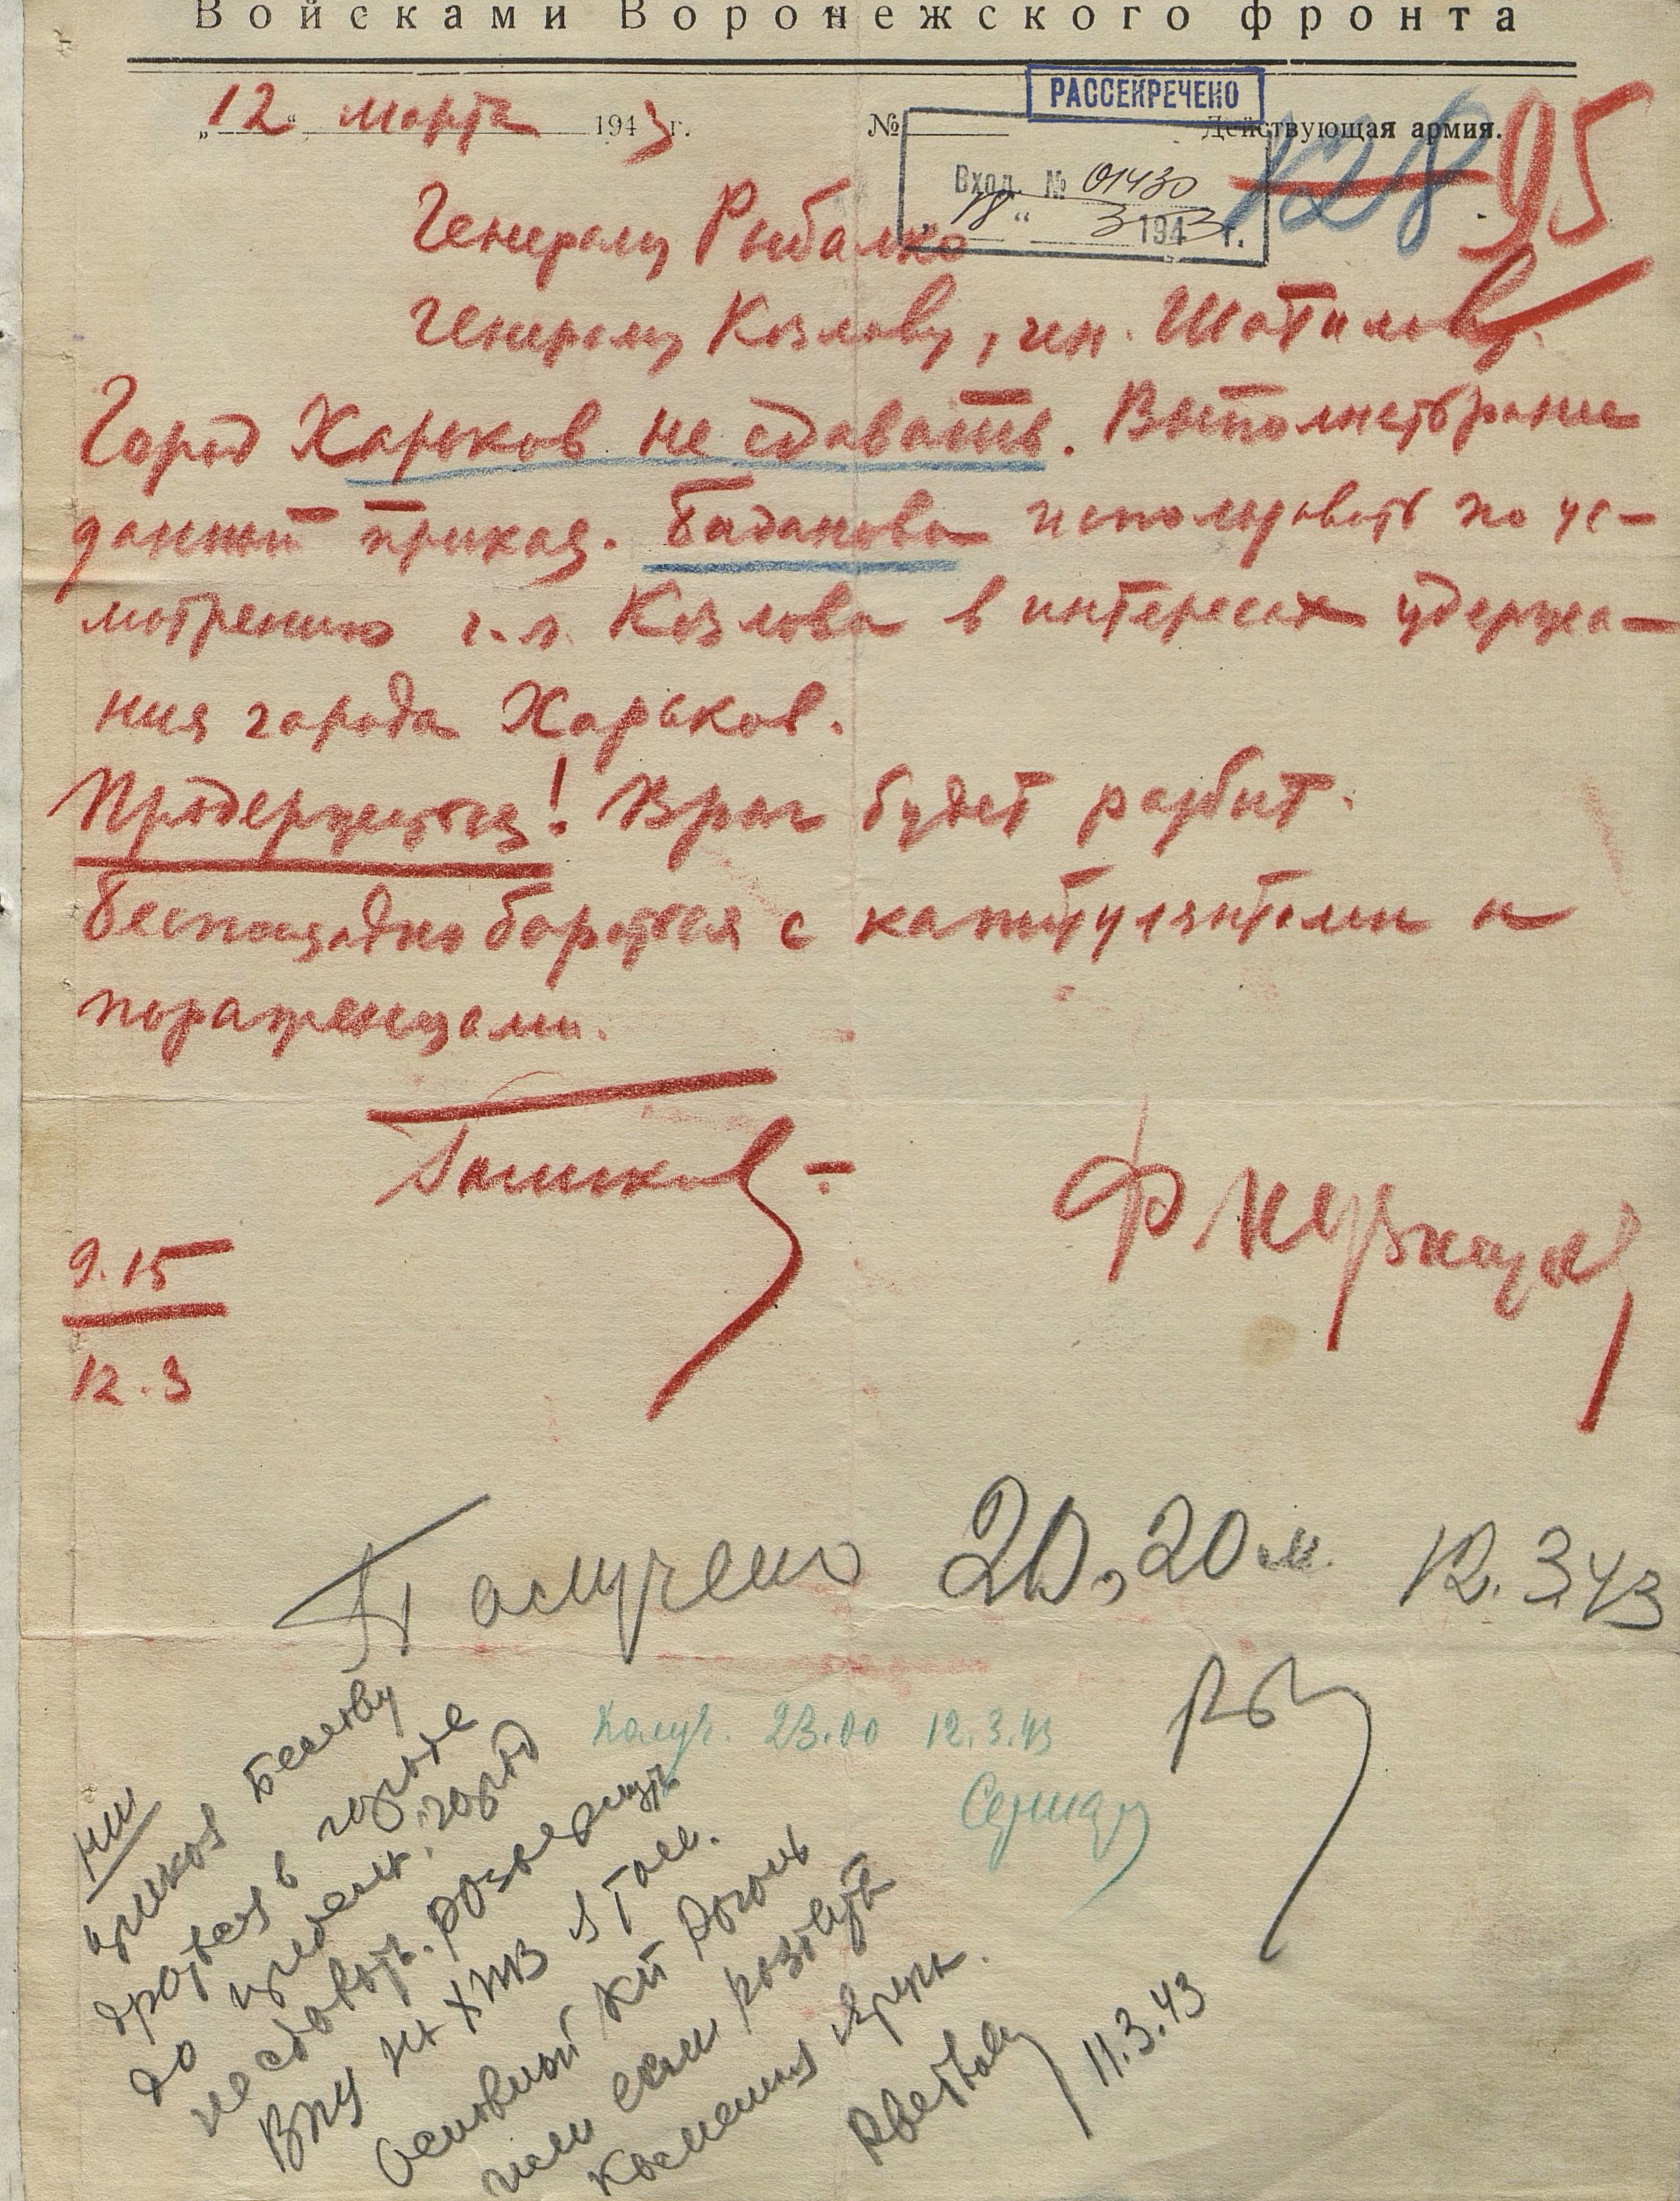 Войсками Воронежского фронта
РАССЕКРЕЧЕНО
„12“ марта 1943 г. № Действующая армия.
128 95
Вход. № 01430
„18“ 3 1943 г.
Генералу Рыбалко
Генералу Козлову, ген. Шатилову.
Город Харьков не сдавать. Выполнять ранее
данный приказ. Баданова использовать по ус-
мотрению г.л. Козлова в интересах удержа-
ния города Харьков.
Продержитесь! Враг будет разбит.
Беспощадно бороться с капитулянтами и
пораженцами.
Голиков
Ф Кузнецов
9.15
12.3
Получено 20,20 м. 12.3.43
Рыб
Получ. 23.00 12.3.43
НШ
приказ Белову
драться в городе
до город
не сдавать.
ВПУ на ХТЗ
Основной КП Рогань
или если
Каменная Яруга.
11.3.43